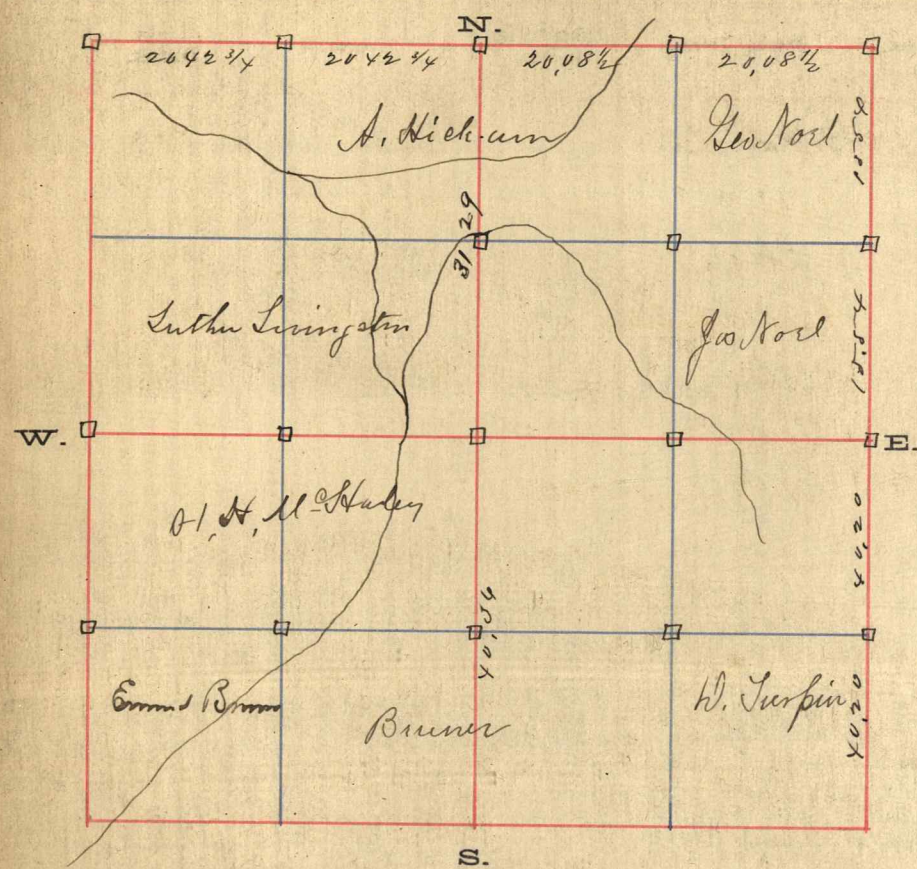 N.
20 42 3/4 20 42 3/4 20,08 1/2 20,08 1/2
A. Hickum
Geo Noel
31 29
Luther Livingston
Jos Noel
W.
E.
H, H,
20,20
40,54
20,20
Bruner
W. Turpin
S.